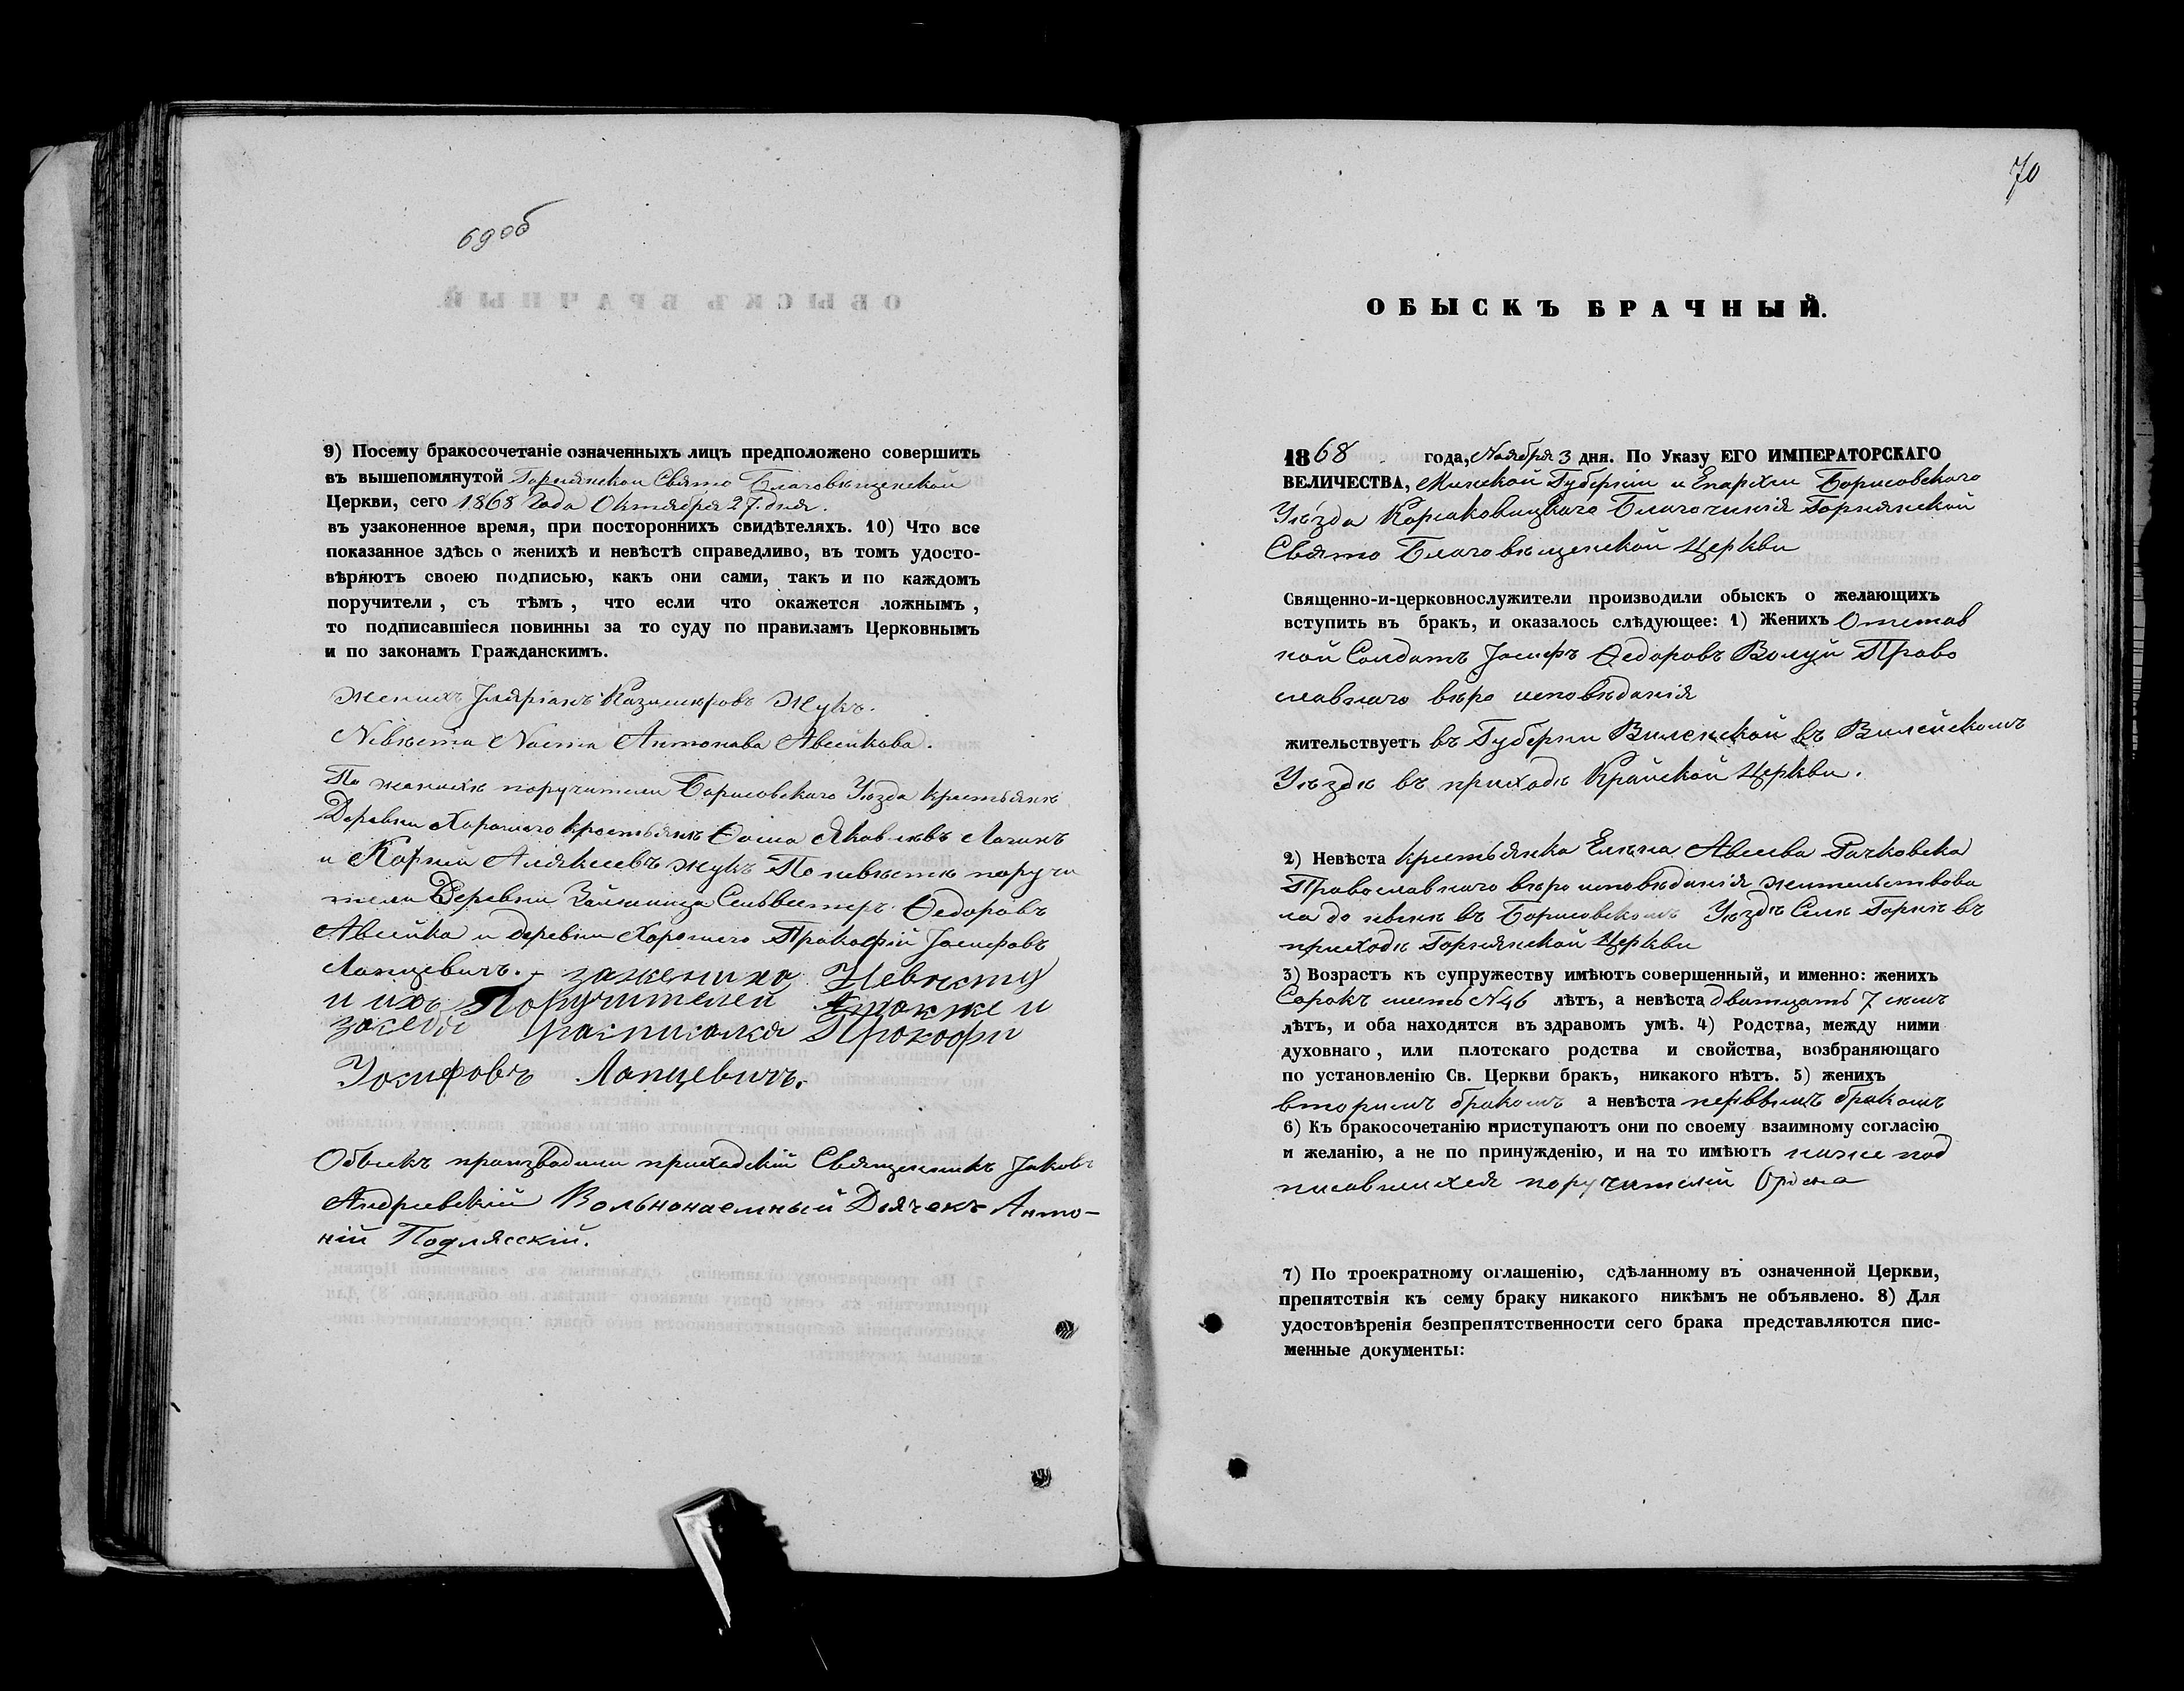 69 об
9) Посему бракосочетаніе означенныхъ лицъ предположено совершить
въ вышепомянутой Горнянской Свято Благовѣщенской
Церкви, сего 1868 Года Октября 27. дня.
въ узаконенное время, при постороннихъ свидѣтеляхъ. 10) Что все
показанное здѣсь о женихѣ и невѣстѣ справедливо, въ томъ удосто-
вѣряютъ своею подписью, какъ они сами, такъ и по каждомъ
поручители, съ тѣмъ, что если что окажется ложнымъ,
то подписавшіеся повинны за то суду по правиламъ Церковнымъ
и по законамъ Гражданскимъ.
женихъ Казимѣровъ Жукъ.
Невѣста Наста Антонава Авсейкова.
По женихѣ поручители Борисовскаго Уѣзда крестьянѣ
Деревни Хорошаго крестьянѣ Ѳома Яковлевъ
и Карней Аляксеевъ жукъ По невѣстѣ поручи
тели Деревни Сельвестер Ѳедоровъ
Авсейка и деревни Хорошего Пракофій Јосифовъ
Лапцевичъ. - за жениха Невѣсту
и ихъ Поручителей также и
за себя расписался Прокофи
Іосифовъ Лапцевичъ.
Обыскъ производили приходскій Священникъ Јаковъ
Андріевскій Вольнонаемный Дьячекъ Анто-
ній Подляскій.
70
ОБЫСКЪ БРАЧНЫЙ.
1868 года, Ноября 3 дня. По Указу ЕГО ИМПЕРАТОРСКАГО
ВЕЛИЧЕСТВА, Минской Губерніи и Епархіи Борисовскаго
Уѣзда Корсаковицкаго Благочинія Горнянской
Свято Благовѣщенской Церкви
Священно-и-церковнослужители производили обыскъ о желающихъ
вступить въ бракъ, и оказалось слѣдующее: 1) Женихъ Отстав
ной Солдатъ Јосифъ Ѳедоровъ Волуй Право
славнаго вѣро исповѣданія
жительствуетъ въ Губерни Виленской въ Вилейскомъ
Уѣздѣ въ приходѣ Крайской Церкви.
2) Невѣста крестьянка Елена Авсеева Рачковска
Православнаго вѣро исповѣданія жительствова
ла до нынѣ въ Борисовскомъ Уѣздѣ Селѣ Горнѣ въ
приходѣ Горнянской Церкви
3) Возрастъ къ супружеству имѣютъ совершенный, и именно: женихъ
Сорокъ шесть N 46 лѣтъ, а невѣста дватцать 7 семь
лѣтъ, и оба находятся въ здравомъ умѣ. 4) Родства, между ними
духовнаго, или плотскаго родства и свойства, возбраняющаго
по установленію Св. Церкви бракъ, никакого нѣтъ. 5) женихъ
вторимъ бракомъ а невѣста первымъ бракомъ
6) Къ бракосочетанію приступаютъ они по своему взаимному согласію
и желанію, а не по принужденію, и на то имѣютъ ниже под
писавшихся поручителей
7) По троекратному оглашенію, сдѣланному въ означенной Церкви,
препятствія къ сему браку никакого никѣмъ не объявлено. 8) Для
удостовѣренія безпрепятственности сего брака представляются пис-
менные документы: